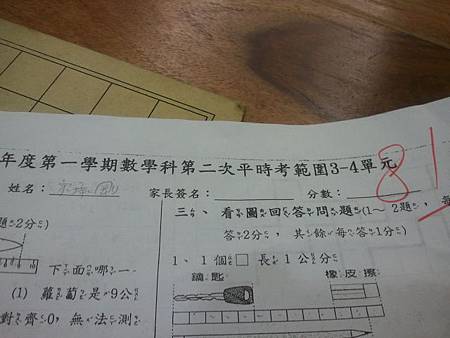 年度第一學期數學科第二次平時考範圍3-4單元
姓名：
家長簽名：
分數：
81
題2分)
下面哪一
(1) 蘿蔔是9公
對齊0，無法測
三、看圖回答問題(1～2題，每
答2分，其餘每答1分)
1、1個□長1公分
鑰匙
橡皮擦